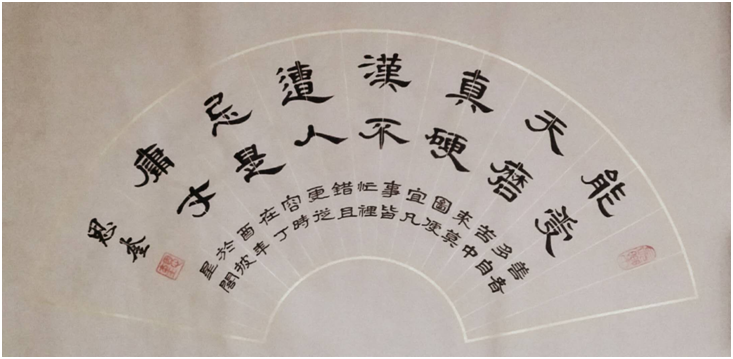 能受
天磨
真硬
漢不
遭人
忌是
庸才
善音
多自
苦中
未莫
圖便
宜凡
事皆
忙裡
錯且
更從
容時
在丁
酉年
於坡
星閣
思奎